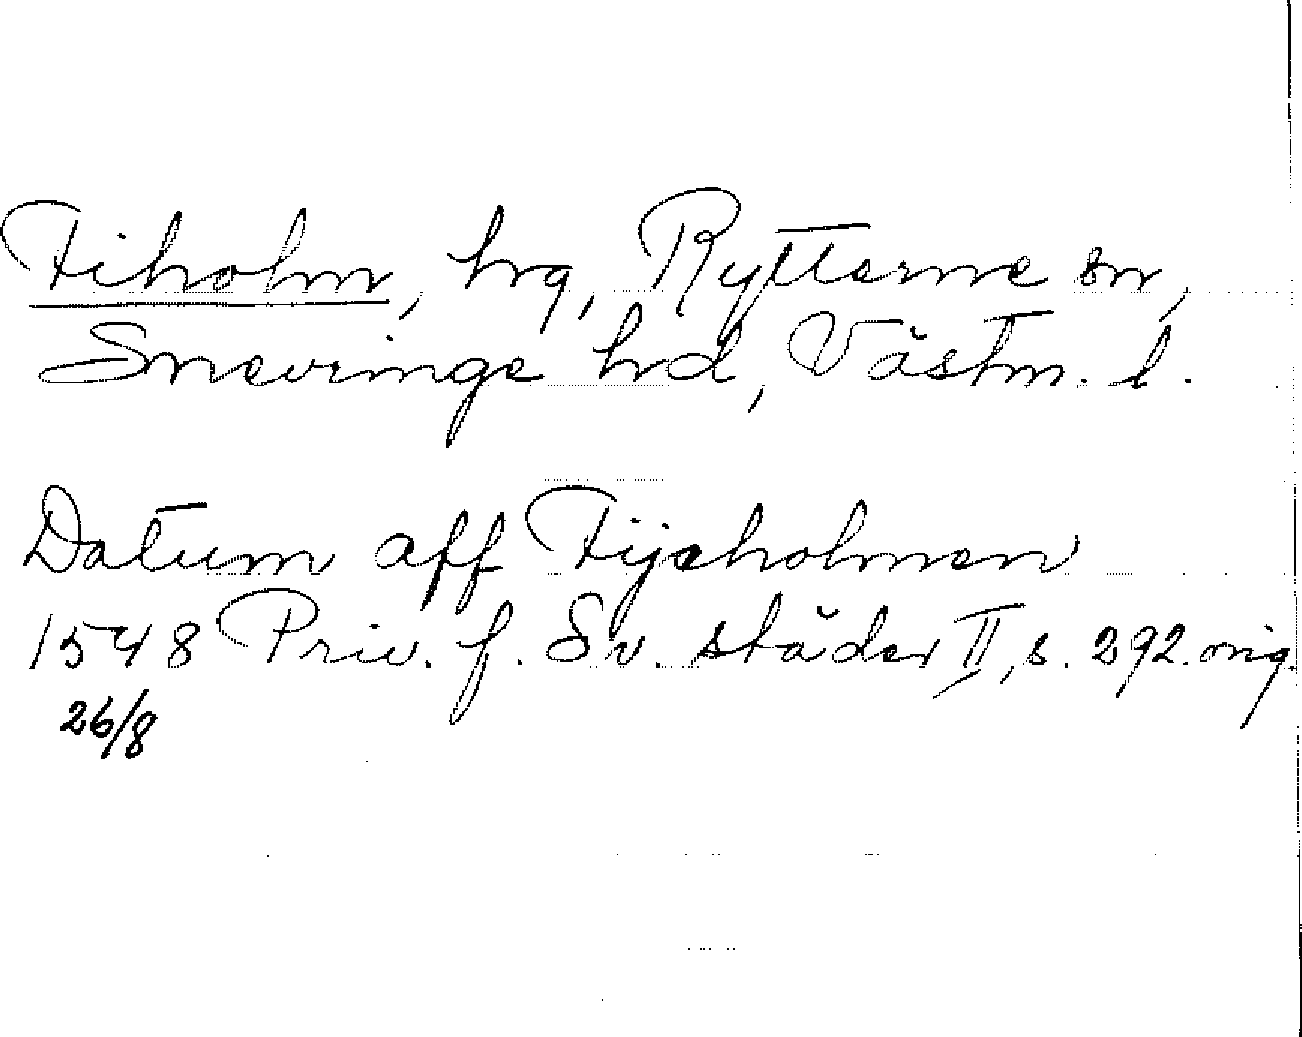 Fiholm, hrg, Rytterne sn,
Snevringe hrd, Västm. l.
Datum aff Fijeholmen
1548 Priv. f. Sv. städer II, s. 292. orig.
26/8